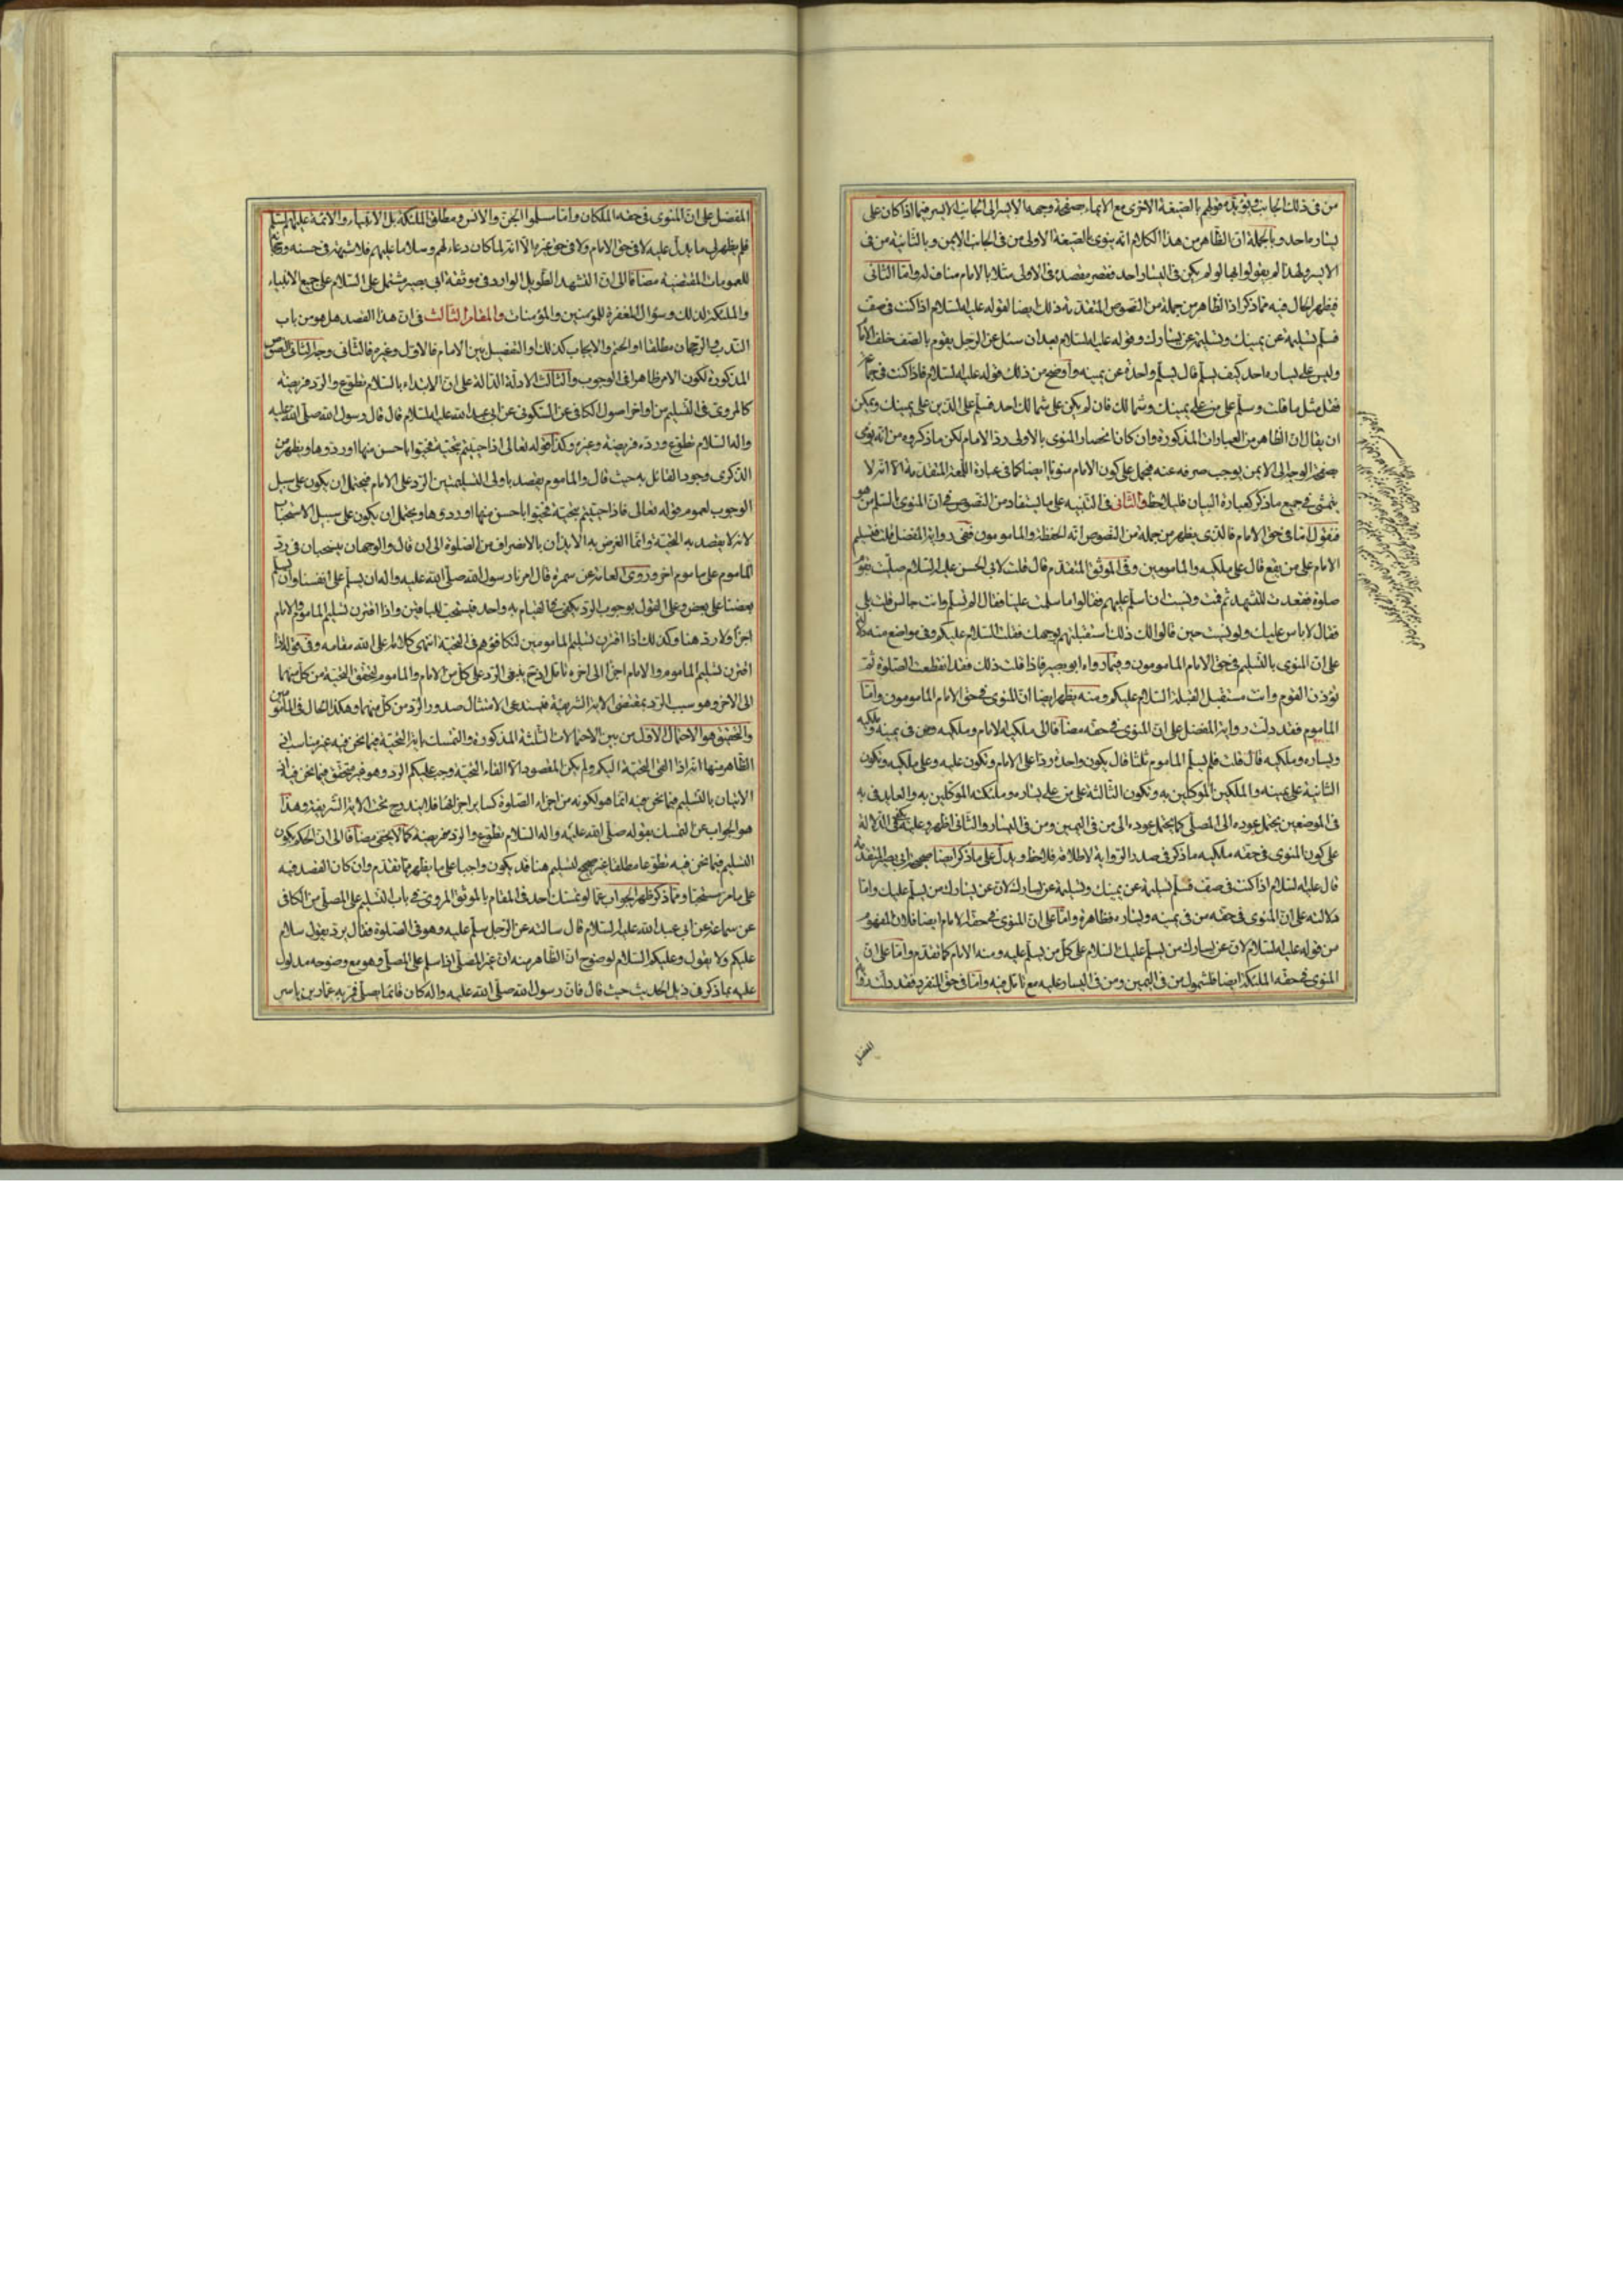 من في ذلك الجانب ويؤيده قولهم بالصيغة الاخرى مع الايماء بصفحة وجهه الايسر الى الجانب الايسر فيما اذا كان على
يساره احد وبالجملة ان الظاهر من هذا الكلام انه ينوى بالصيغة الاولى من في الجانب الايمن وبالثانية من في
الايسر ولهذا لم يقولوا بها لو لم يكن في اليسار احد فقصر مقصده في الاولى مثلا بالامام مناف له واما الثاني
فيظهر الحال فيه مما ذكر اذ الظاهر من جملة من النصوص المتقدمة ذلك ايضا لقوله عليه السلام اذا كنت في صف
فسلم تسليمة عن يمينك وتسليمة عن يسارك وقوله عليه السلام بعد ان سئل عن الرجل يقوم بالصف خلف الامام
وليس على يساره احد كيف يسلم قال يسلم واحدة عن يمينه واوضح من ذلك قوله عليه السلام فاذا كنت في جماعة
فقل مثل ما قلت وسلم على من على يمينك وشمالك فان لم يكن على شمالك احد فسلم على الذين على يمينك ويمكن
ان يقال ان الظاهر من العبارات المذكورة وان كان انحصار المنوى بالاولى رد الامام لكن ما ذكروه من انه يومى
بصفحة الوجه الى الايمن يوجب صرفه عنه فيحمل على كون الامام منويا ايضا كما في عبارة اللمعة المتقدمة الا انه لا
يتمشى في جميع ما ذكر كعبارة البيان فليلاحظ والثاني في التنبيه على ما يستفاد من النصوص في ان المنوى بالتسليم من هو
فنقول اما في حق الامام فالذى يظهر من جملة من النصوص انه الحفظة والمامومون ففي رواية المفضل قلت فتسليم
الامام على من يقع قال على ملكيه والمامومين وفي الموثق المتقدم قال قلت لابي الحسن عليه السلام صليت بقوم
صلوة فقعدت للتشهد ثم قمت ونسيت ان اسلم عليهم فقالوا ما سلمت علينا فقال الم تسلم وانت جالس قلت بلى
فقال لا باس عليك ولو نسيت حين قالوا لك ذلك استقبلتهم بوجهك فقلت السلام عليكم وفي مواضع منه دلالة
على ان المنوى بالتسليم في حق الامام المامومون وفيما رواه ابو بصير فاذا قلت ذلك فقد انقطعت الصلوة ثم
تؤذن القوم وانت مستقبل القبلة السلام عليكم ومنه يظهر ايضا ان المنوى في حق الامام المامومون واما
الماموم فقد دلت رواية المفضل على ان المنوى في حقه مضافا الى ملكيه الامام وملكيه ومن في يمينه وملكيه
ويساره وملكيه قال قلت فلم يسلم الماموم ثلثا قال يكون واحدة ردا على الامام وتكون عليه وعلى ملكيه وتكون
الثانية على يمينه والملكين الموكلين به وتكون الثالثة على من على يساره وملكيه الموكلين به والعايد في به
في الموضعين يحتمل عوده الى المصلى كما يحتمل عوده الى من في اليمين ومن في اليسار والثاني اظهر وعليه ففي الدلالة
على كون المنوى في حقه ملكيه ما ذكر في صدر الرواية لاطلاقه فلاحظ ويدل على ما ذكر ايضا صحيحة ابي بصير المتقدمة
قال عليه السلام اذا كنت في صف فسلم تسليمة عن يمينك وتسليمة عن يسارك لان عن يسارك من يسلم عليك واما
دلالته على ان المنوى في حقه من في يمينه ويساره فظاهرة واما على ان المنوى في حقه الامام ايضا فلان المفهوم
من قوله عليه السلام لان عن يسارك من يسلم عليك السلام على كل من يسلم عليه ومنه الامام كما تقدم واما على ان
المنوى في حقه الملئكة ايضا فلشمول من في اليمين ومن في اليسار عليه مع تامل فيه واما في حق المنفرد فقد دلت رواية
المفضل
المفضل على ان المنوى في حقه الملكان واما مسلموا الجن والانس ومطلق الملئكة بل الانبياء والائمة عليهم السلم
فلم يظهر لى ما يدل عليه لا في حق الامام ولا في حق غيره الا انه لما كان دعاء لهم وسلاما عليهم فلا شبهة في حسنه
للعمومات المقتضية مضافا الى ان التشهد الطويل الوارد في موثقة ابي بصير مشتمل على السلام على جميع الانبياء
والملئكة لذلك وسؤال المغفرة للمؤمنين والمؤمنات والمقام الثالث في ان هذا القصد هل هو من باب
الندب والرجحان مطلقا او الحتم والايجاب كذلك او التفصيل بين الامام فالاول وغيره فالثاني وجه الثاني النصوص
المذكورة لكون الامر ظاهرا في الوجوب والثالث الادلة الدالة على ان الابتداء بالسلام تطوع والرد فريضة
كالمروى في التسليم من اواخر اصول الكافي عن السكونى عن ابي عبد الله عليه السلام قال قال رسول الله صلى الله عليه
واله السلام تطوع ورده فريضة وغيره وكذا قوله تعالى اذا حييتم بتحية فحيوا باحسن منها او ردوها ويظهر من
الذكرى وجود القائل به حيث قال والماموم يقصد باولى التسليمتين الرد على الامام فيحتمل ان يكون على سبيل
الوجوب لعموم قوله تعالى فاذا حييتم بتحية فحيوا باحسن منها او ردوها ويحتمل ان يكون على سبيل الاستحباب
لانه لا يقصد به التحية وانما الغرض به الايذان بالانصراف من الصلوة الى ان قال والوجهان ينسحبان في رد
الماموم على ماموم اخر وروى العامة عن سمرة قال امرنا رسول الله صلى الله عليه واله ان نسلم على انفسنا وان يسلم
بعضنا على بعض وعلى القول بوجوب الرد يكفى في القيام به واحد فيستحب للباقين واذا اقترن تسليم الماموم والامام
اجزأ ولا رد هنا وكذلك اذا اقترن تسليم المامومين لتكافؤهم في التحية انتهى كلامه اعلى الله مقامه وفي قوله اذا
اقترن تسليم الماموم والامام اجزأ الى اخره تامل اذ ح ينبغى الرد على كل من الامام والماموم لتحقق التحية من كل منهما
الى الاخر وهو سبب الرد بمقتضى الاية الشريفة فيستدعى الامتثال صدور الرد من كل منهما وهكذا الحال في المامومين
والتحقيق هو الاحتمال الاول من بين الاحتمالات الثلثة المذكورة والتمسك باية التحية فيما نحن فيه غير مناسب اذ
الظاهر منها انه اذا القى التحية اليكم ولم يكن المقصود الا القاء التحية وجب عليكم الرد وهو غير متحقق فيما نحن فيه اذ
الاتيان بالتسليم فيما نحن فيه انما هو لكونه من اجزاء الصلوة كساير اجزائها فلا يندرج تحت الاية الشريفة وهذا
هو الجواب عن التمسك بقوله صلى الله عليه واله السلام تطوع والرد فريضة كما لا يخفى مضافا الى ان الحكم بكون
التسليم فيما نحن فيه تطوعا مطلقا غير صحيح لتسليم هنا قد يكون واجبا على ما يظهر مما تقدم وان كان القصد فيه
على ما مر مستحبا ومما ذكر ظهر الجواب عما لو تمسك احد في المقام بالموثق المروى في باب التسليم على المصلى من الكافي
عن سماعة عن ابي عبد الله عليه السلام قال سالته عن الرجل يسلم عليه وهو في الصلوة فقال يرد يقول سلام
عليكم ولا يقول وعليكم السلام لوضوح ان الظاهر منه ان غير المصلى اذا سلم على المصلى وهو مع وضوحه مدلول
عليه بما ذكر في ذيل الحديث حيث قال فان رسول الله صلى الله عليه واله كان قائما يصلى فمر به عمار بن ياسر